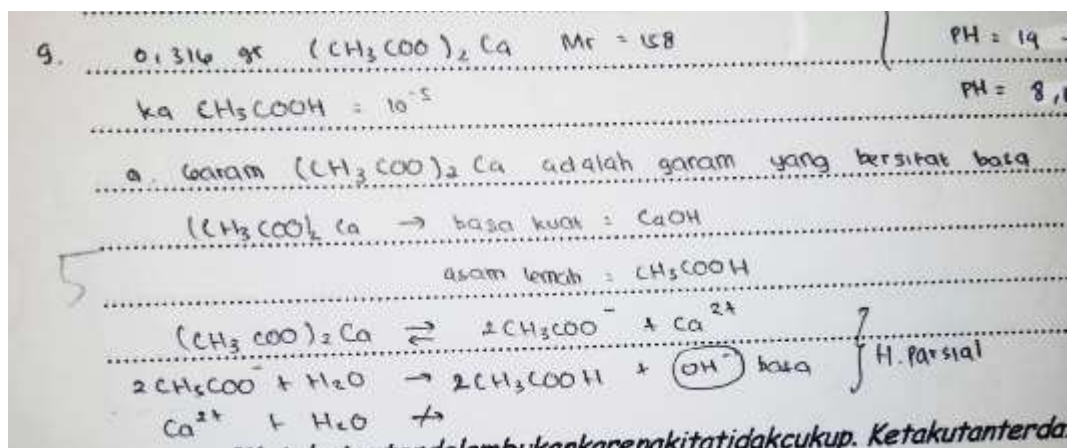 9. 0,316 gr (CH3COO)2 Ca Mr = 158
PH = 14 -
ka CH3COOH = 10^-5
PH = 8,
a. Garam (CH3COO)2 Ca adalah garam yang bersifat basa
(CH3COO)2 Ca → basa kuat : CaOH
asam lemah : CH3COOH
(CH3COO)2 Ca ⇄ 2CH3COO^- + Ca^2+
2CH3COO^- + H2O → 2CH3COOH + OH^- basa
H. Parsial
Ca^2+ + H2O ↛
karenakitatidakcukup. Ketakutanterda